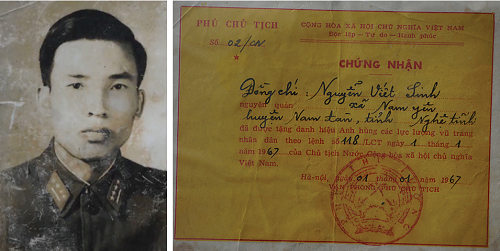 PHỦ CHỦ TỊCH
Số 02/CN
CỘNG HÒA XÃ HỘI CHỦ NGHĨA VIỆT NAM
Độc lập - Tự do - Hạnh phúc
CHỨNG NHẬN
Đồng chí: Nguyễn Viết Sinh
nguyên quán xã Nam yên
huyện Nam đàn, tỉnh Nghệ tĩnh
đã được tặng danh hiệu Anh hùng các lực lượng vũ trang
nhân dân theo lệnh số 118/LCT ngày 1 tháng 1
năm 1967 của Chủ tịch Nước Cộng hòa xã hội chủ nghĩa
Việt Nam.
Hà-nội, ngày 01 tháng 01 năm 1967
VĂN PHÒNG PHỦ CHỦ TỊCH